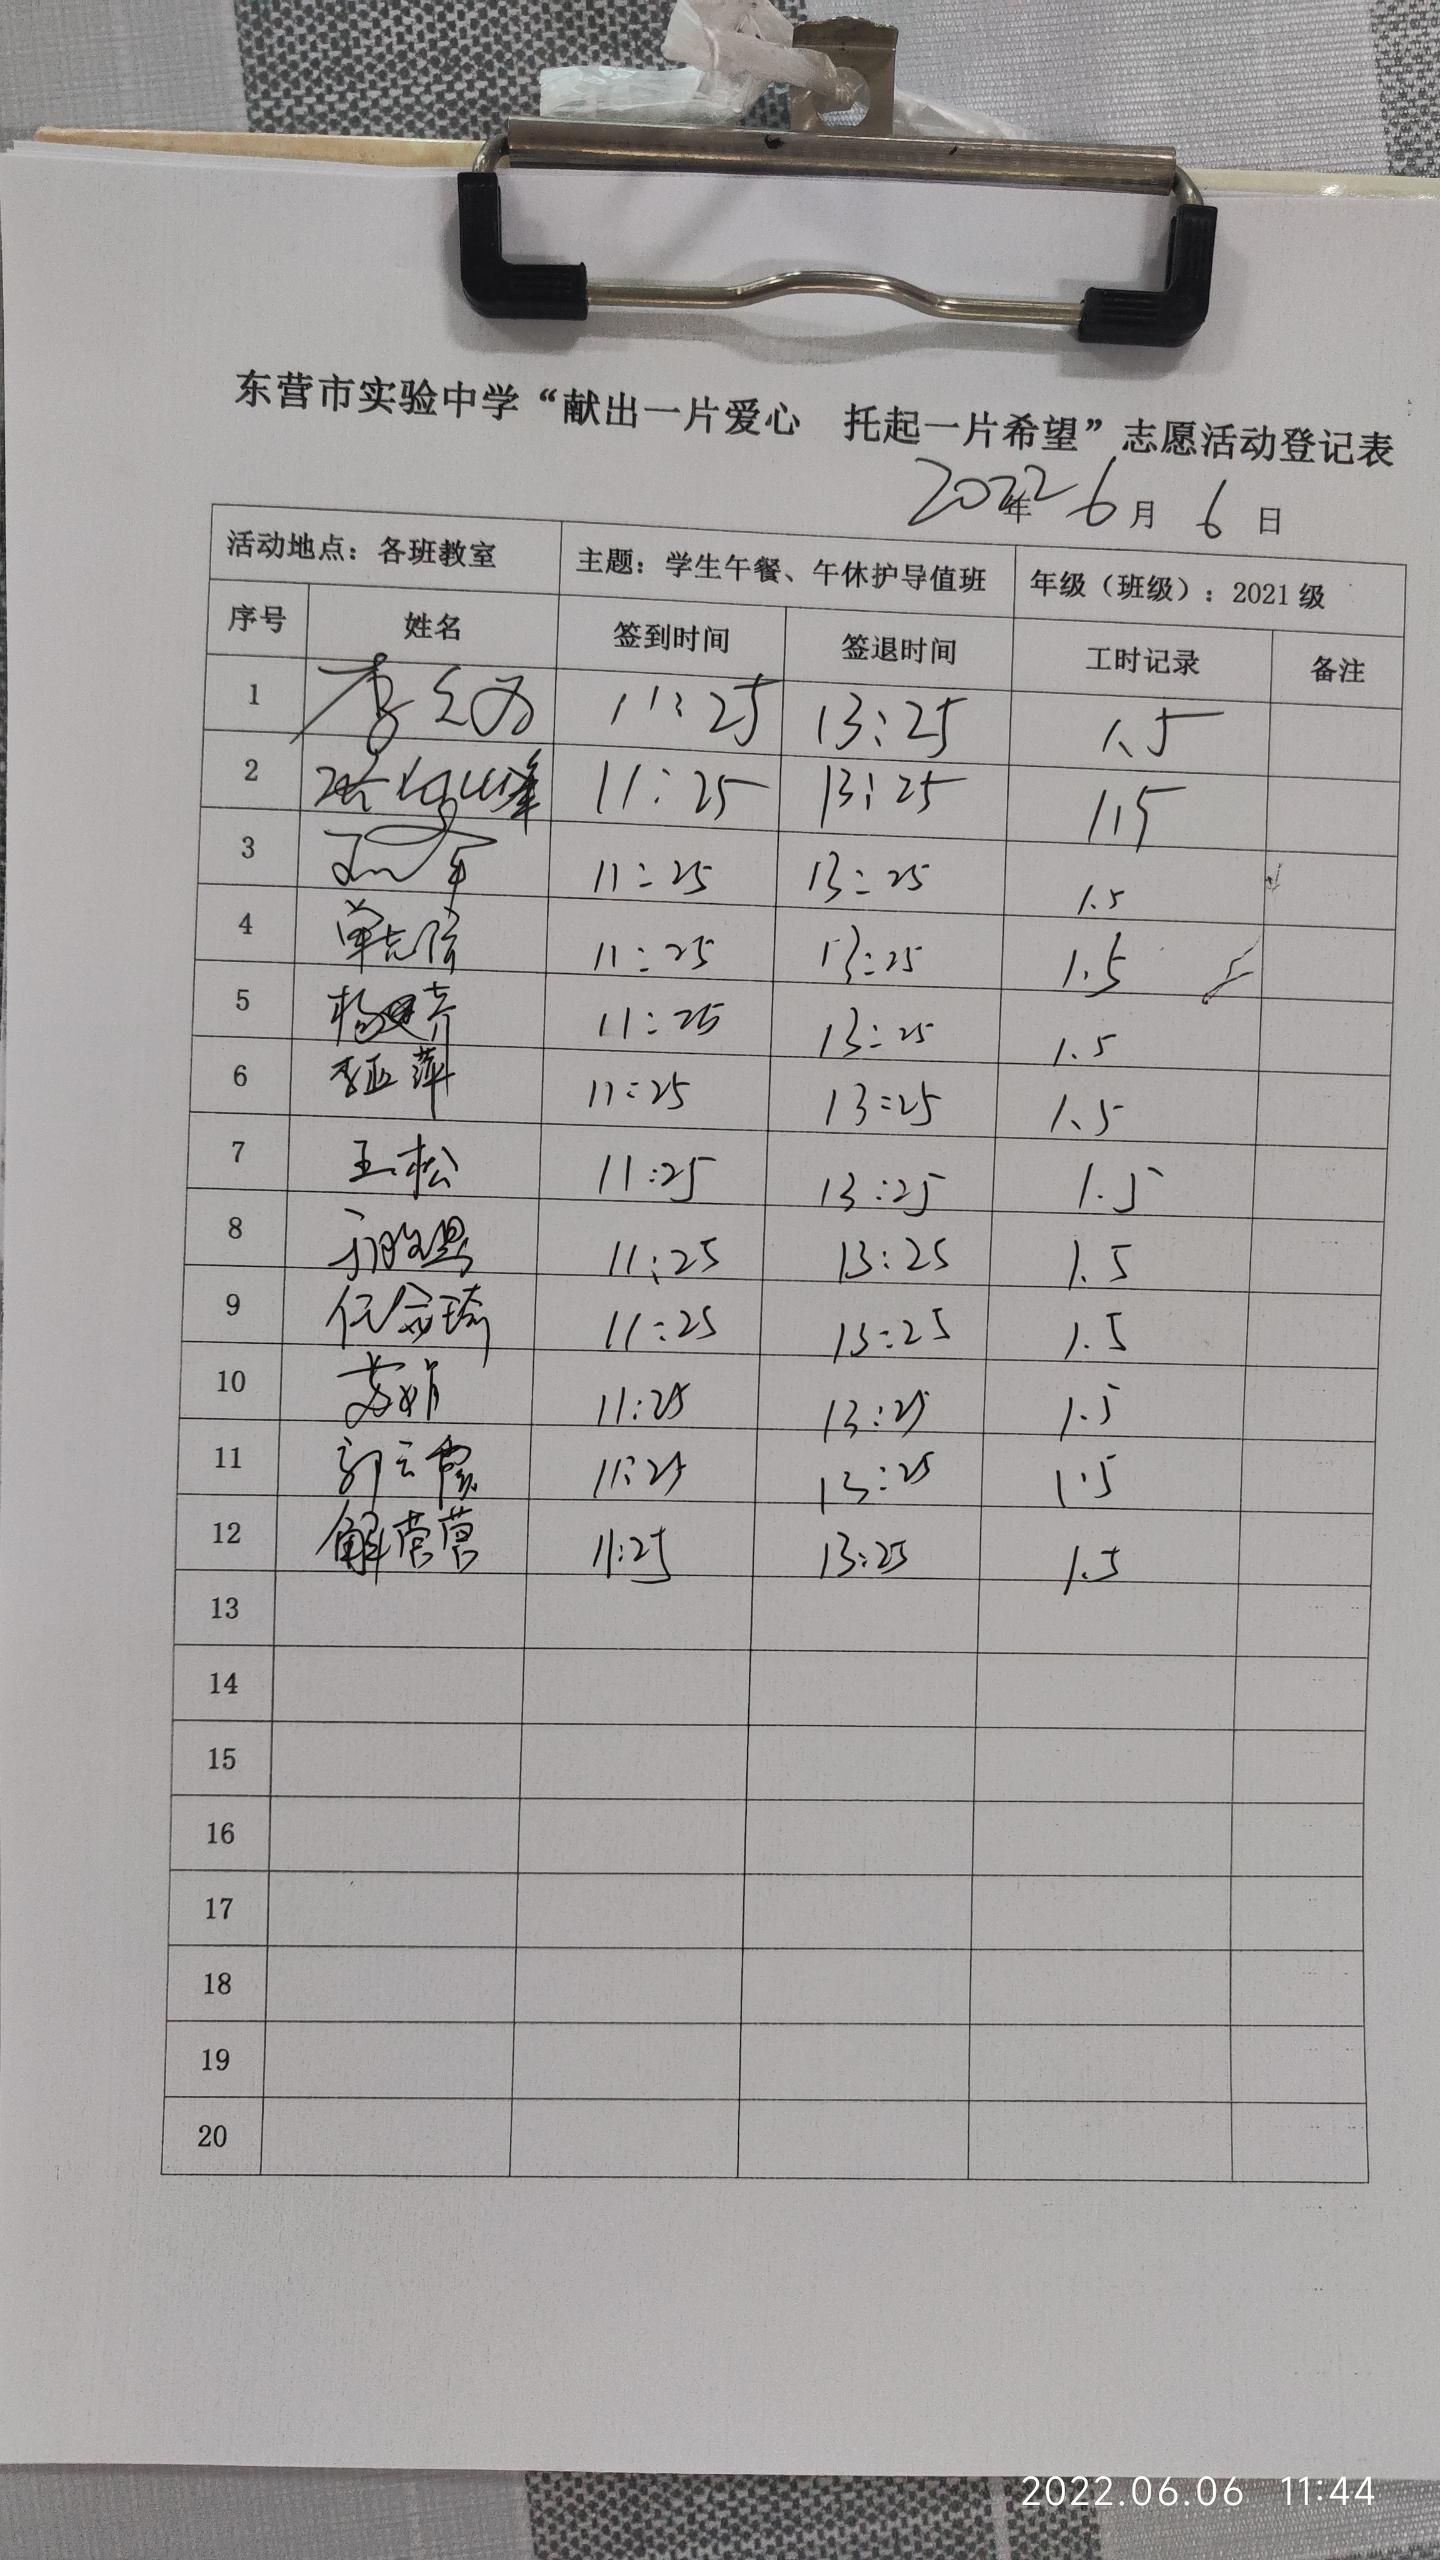 东营市实验中学“献出一片爱心 托起一片希望”志愿活动登记表
2022年 6月 6日
活动地点：各班教室 主题：学生午餐、午休护导值班 年级（班级）：2021级
序号 姓名 签到时间 签退时间 工时记录 备注
1 11:25 13:25 1.5
2 11:25 13:25 1.5
3 11:25 13:25 1.5
4 11:25 13:25 1.5
5 11:25 13:25 1.5
6 李亚萍 11:25 13:25 1.5
7 王松 11:25 13:25 1.5
8 11:25 13:25 1.5
9 11:25 13:25 1.5
10 苏娟 11:25 13:25 1.5
11 郭云霞 11:25 13:25 1.5
12 解营营 11:25 13:25 1.5
13
14
15
16
17
18
19
20
2022.06.06 11:44